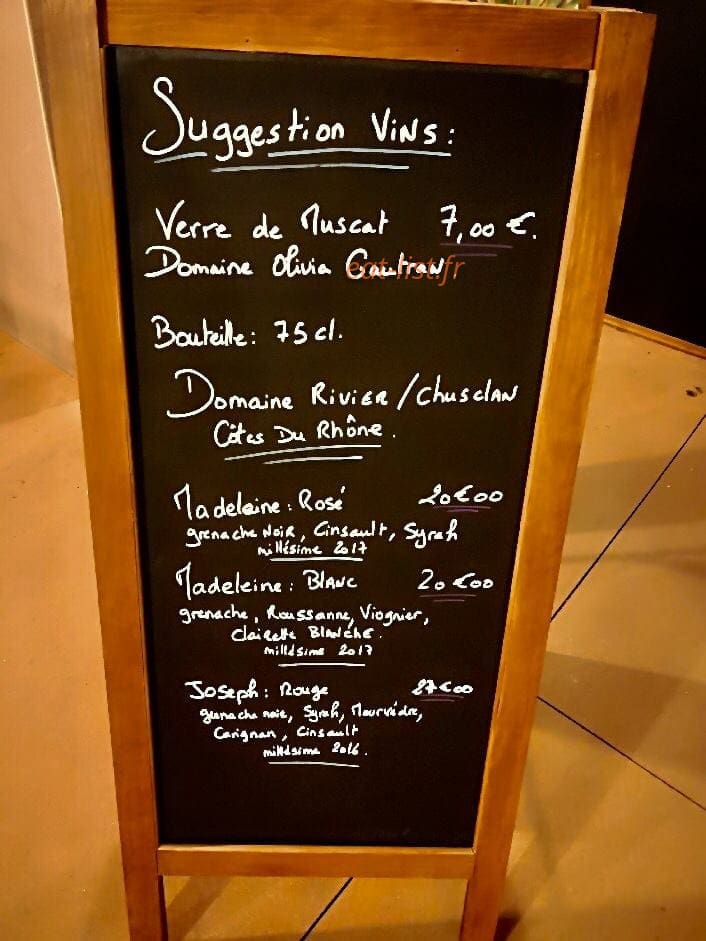 Suggestion Vins :
Verre de Muscat 7,00 €.
Domaine Olivia Gautran.
eat-list.fr
Bouteille : 75 cl.
Domaine Rivier / Chusclan
Côtes Du Rhône.
Madeleine : Rosé 20€00
grenache Noir, Cinsault, Syrah
millésime 2017
Madeleine : Blanc 20€00
grenache, Roussanne, Viognier,
Clairette Blanche.
millésime 2017
Joseph : Rouge 27€00
grenache noir, Syrah, Mourvèdre,
Carignan, Cinsault
millésime 2016.